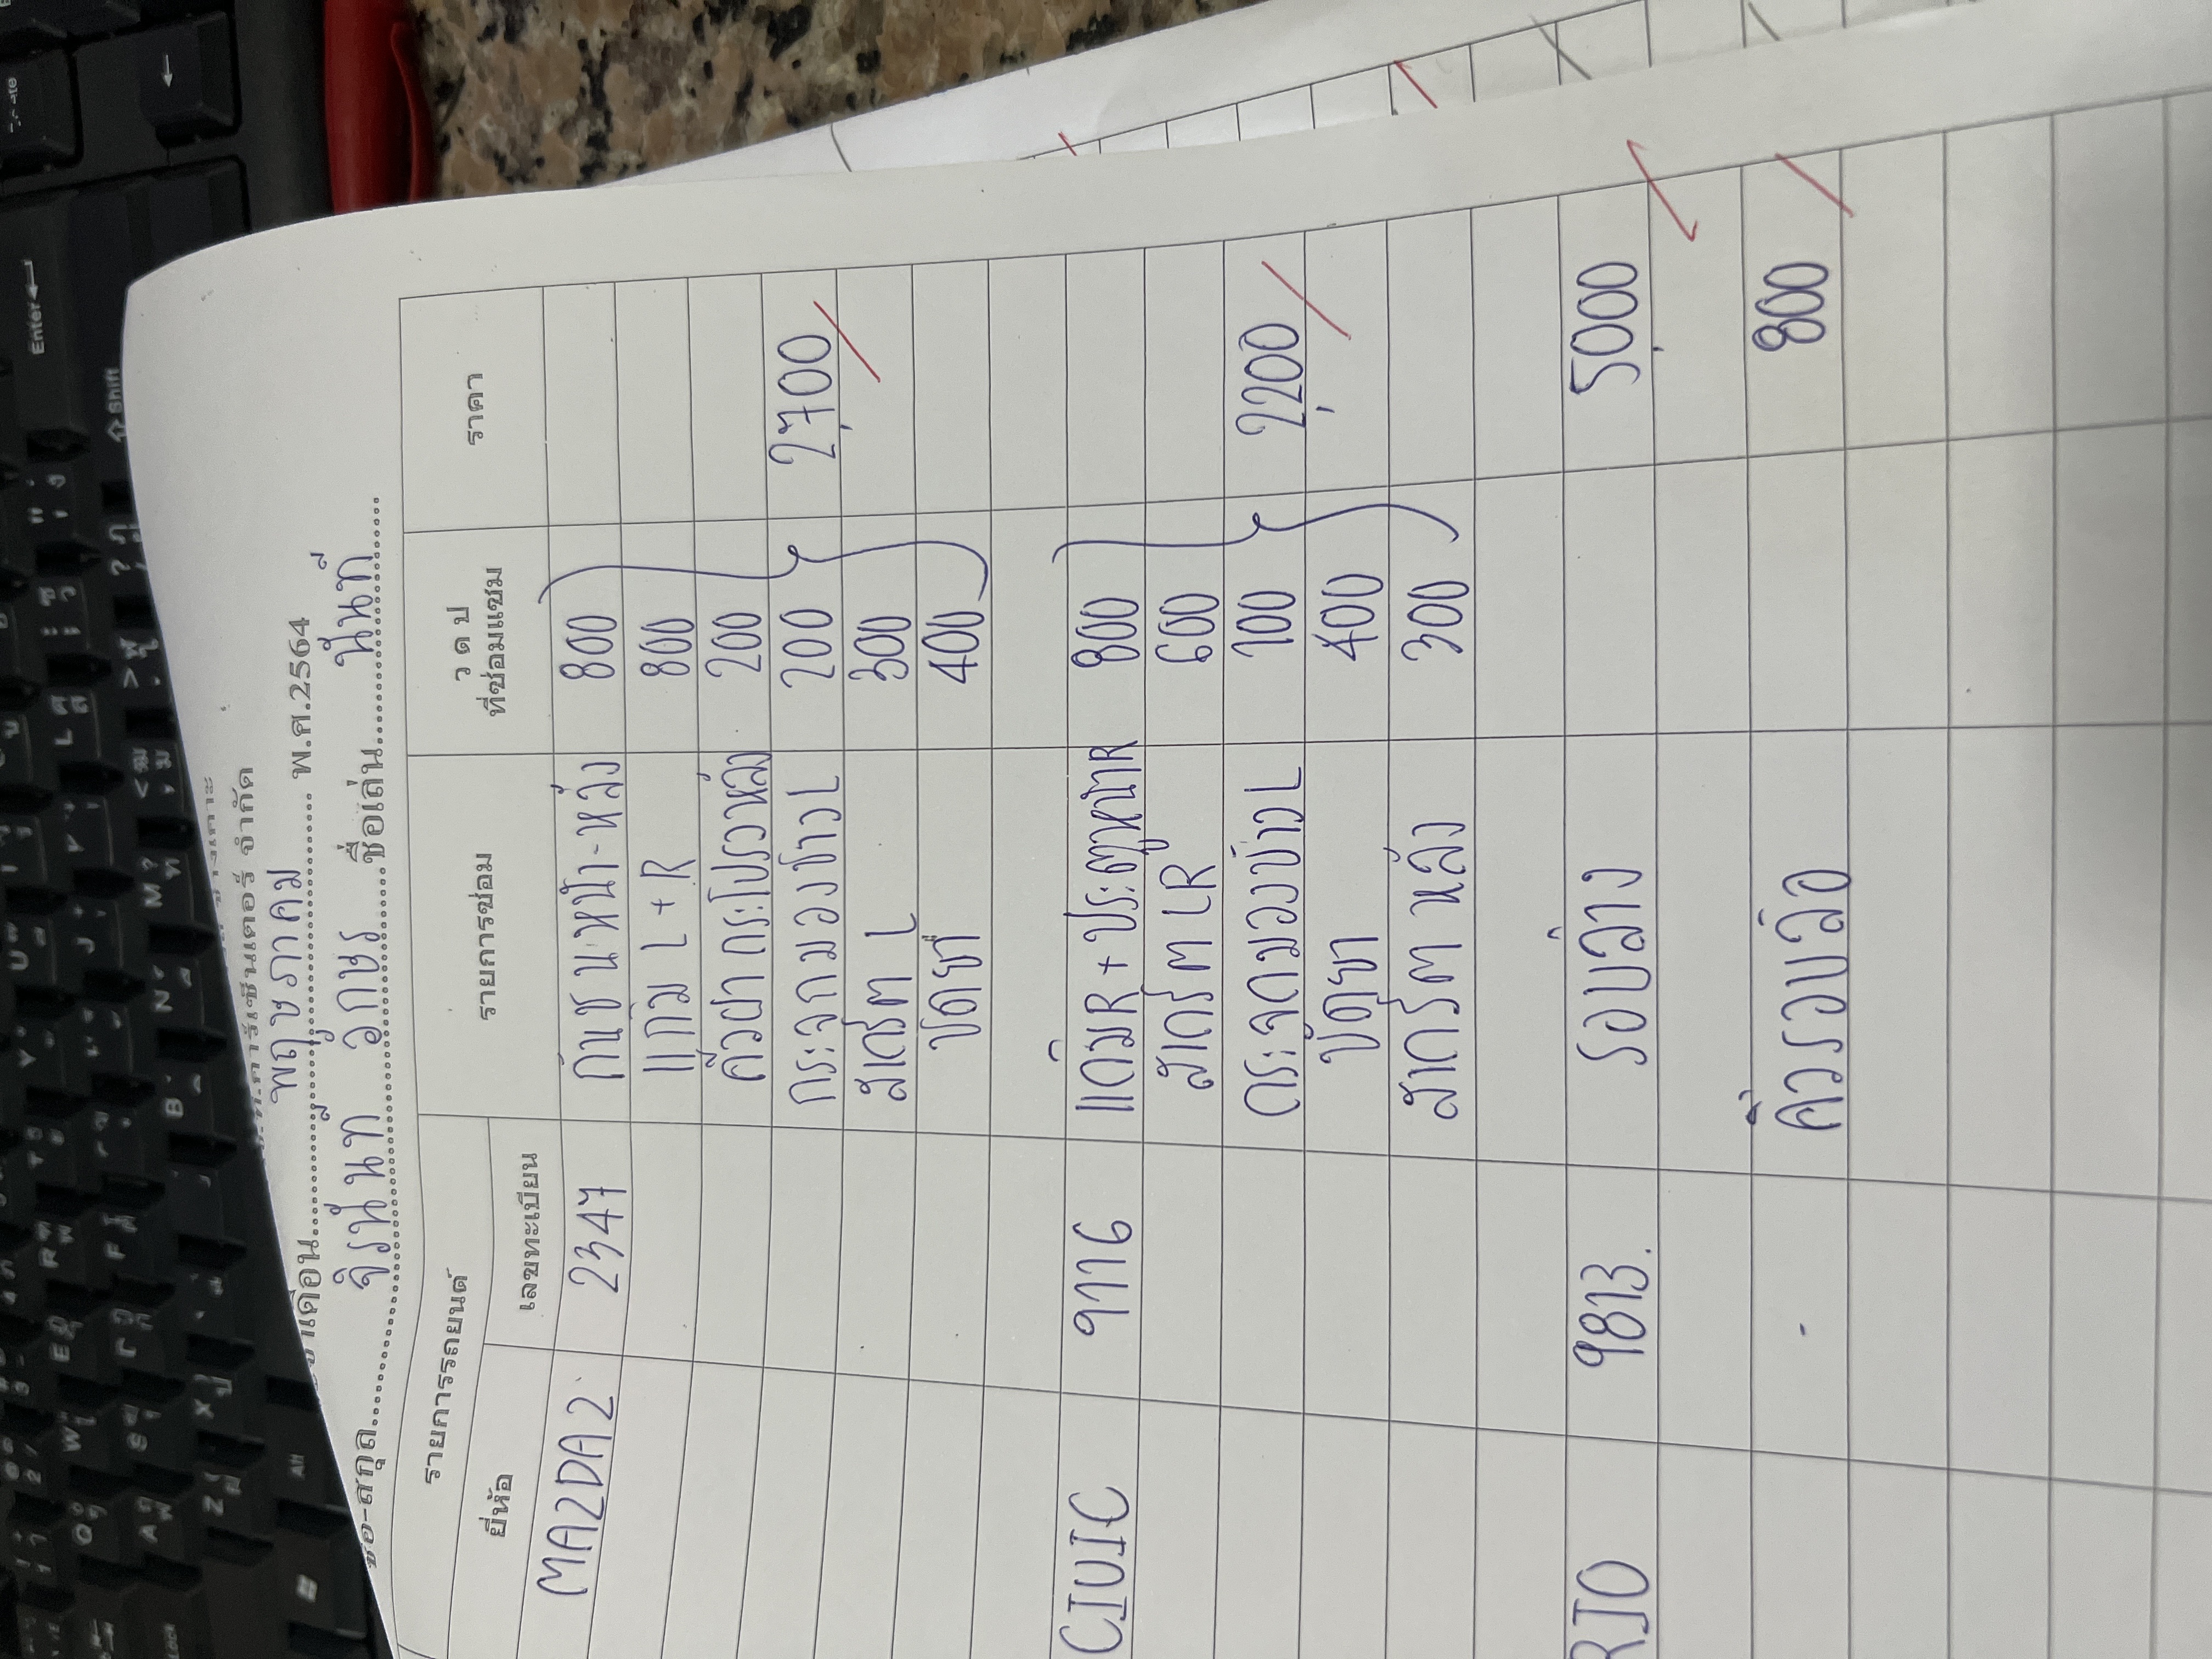 พฤษภาคม
ประจำเดือน................ พ.ศ.2564
ชื่อ-สกุล จิรนันท์ อักษร ชื่อเล่น นันท์
รายการรถยนต์ รายการซ่อม ว ด ป ที่ซ่อมแซม ราคา
ยี่ห้อ เลขทะเบียน
MAZDA2 2347 กันชนหน้า-หลัง 800
แก้ม L + R 800
คิ้วฝากระโปรงหลัง 200
กระจกมองข้าง L 200 2,700
สเกิร์ต L 300
ขัดยา 400
CIVIC 9116 แก้มR + ประตูหน้าR 800
สเกิร์ต LR 600
กระจกมองข้าง L 100 2,200
ขัดยา 400
สเกิร์ต หลัง 300
RIO 9813 รอบล่าง 5,000
- คิ้วรอบล้อ 800
Enter
Shift
Alt